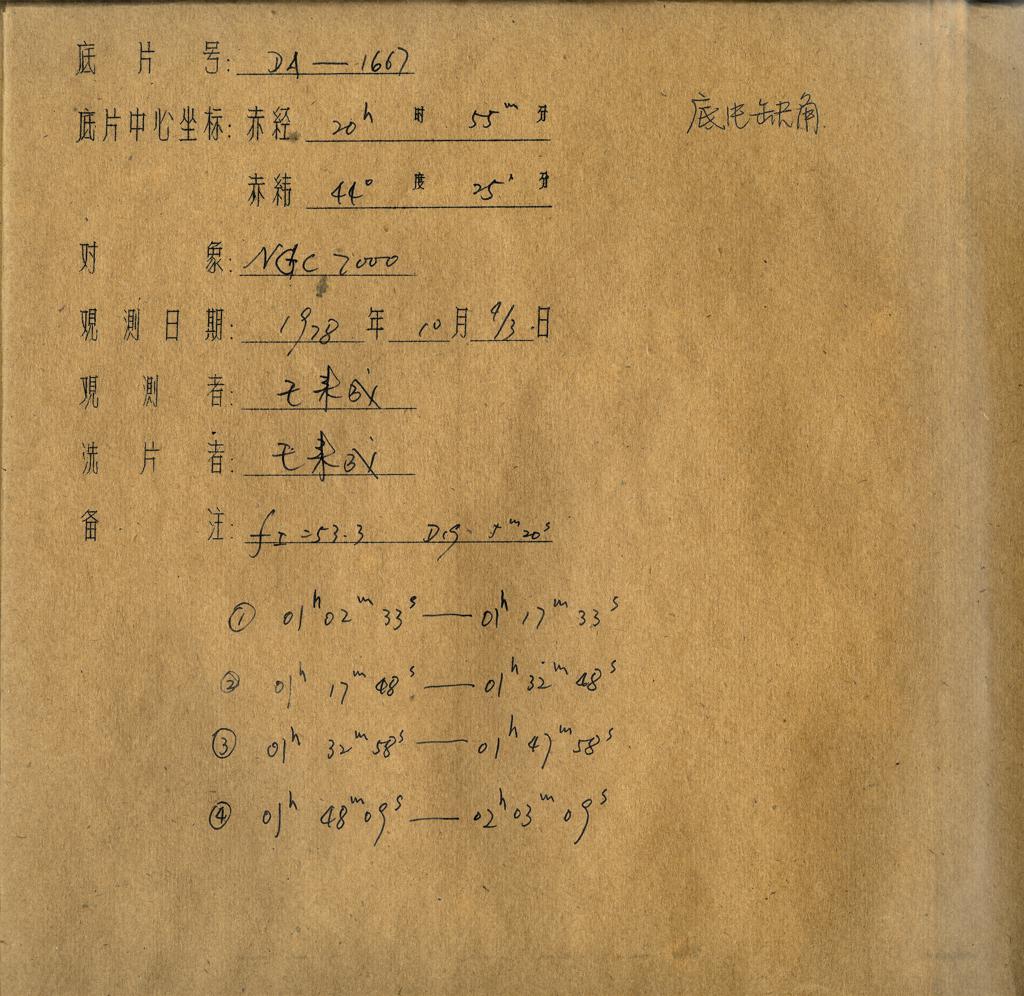 底片号: DA — 1667
底片中心坐标: 赤经 20h 时 55m 分
底片缺角.
赤纬 44° 度 25' 分
对象: NGC 7000
观测日期: 1978 年 10 月 4/3 日
观测者:
洗片者:
备注: f I = 53.3
① 01h 02m 33s — 01h 17m 33s
② 01h 17m 48s — 01h 32m 48s
③ 01h 32m 58s — 01h 47m 58s
④ 01h 48m 09s — 02h 03m 09s